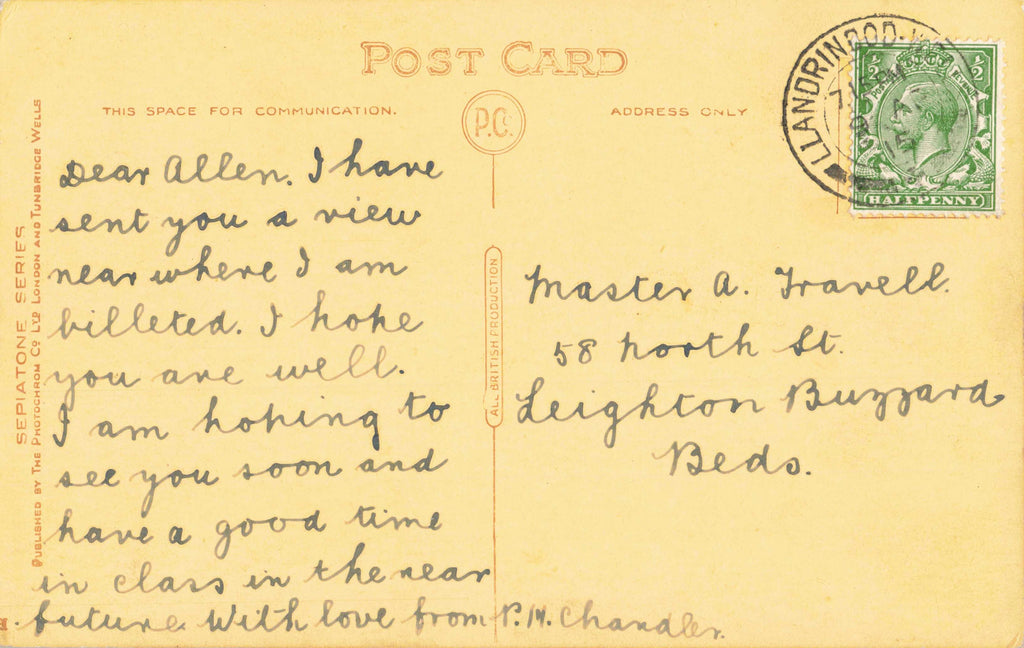 POST CARD
THIS SPACE FOR COMMUNICATION.
P.C.
ADDRESS ONLY
LLANDRINDOD
7.15 PM
½ ½
HALFPENNY
SEPIATONE SERIES
PUBLISHED BY THE PHOTOCHROM CO LTD LONDON AND TUNBRIDGE WELLS
ALL BRITISH PRODUCTION
Dear Allen. I have
sent you a view
near where I am
billeted. I hope
you are well.
I am hoping to
see you soon and
have a good time
in class in the near
future With love from P.M. Chandler.
Master A. Travell.
58 North St.
Leighton Buzzard
Beds.